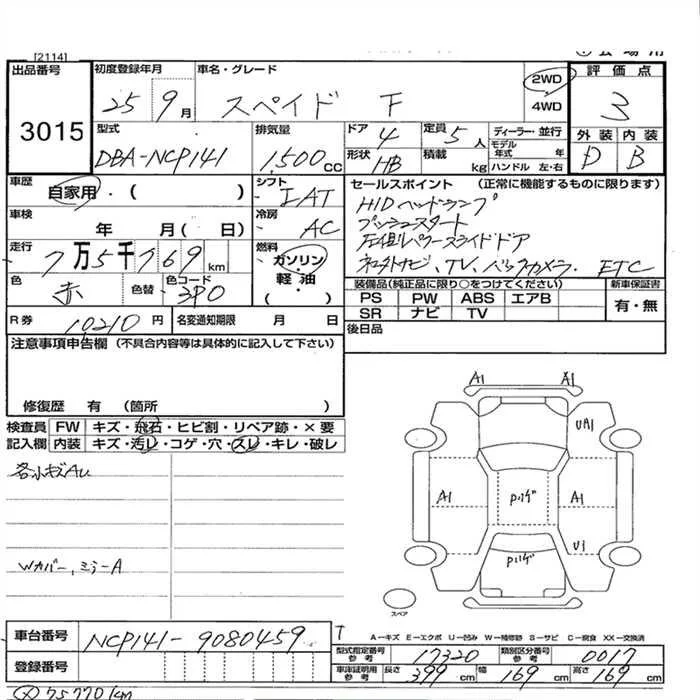 [2114]
出品番号 3015
初度登録年月 25 9月
車名・グレード スペイド F
2WD
4WD
評価点 3
外装 D 内装 B
型式 DBA-NCP141
排気量 1,500cc
ドア 4 定員 5人
形状 HB 積載 kg
ディーラー・並行
モデル年式 年
ハンドル 左・右
車歴 自家用・( )
シフト IAT
車検 年 月( 日)
冷房 AC
走行 7万5千769km
燃料 ガソリン・軽油( )
色 赤 色替 色コード 3P0
R券 10210円 名変通知期限 月 日
セールスポイント (正常に機能するものに限ります)
HIDヘッドランプ
プッシュスタート
左側パワースライドドア
TV、バックカメラ. ETC
装備品(純正品に限り○をつけてください)
PS PW ABS エアB
SR ナビ TV
新車保証書 有・無
後日品
注意事項申告欄 (不具合内容等は具体的に記入して下さい)
修復歴 有 (箇所 )
検査員記入欄 FW キズ・飛石・ヒビ割・リペア跡・×要
内装 キズ・汚レ・コゲ・穴・スレ・キレ・破レ
各小キズAU
Wカバー、ミラーA
A1 A1
UA1
A1 Pハゲ A1
U1
Pハゲ
スペア
A−キズ E−エクボ U−凹み W−補修跡 S−サビ C−腐食 XX−交換済
車台番号 NCP141-9080459
登録番号
型式指定番号 参考 17320 類別区分番号 参考 0017
車庫証明用 参考 長さ 399cm 幅 169cm 高さ 169cm
75770km